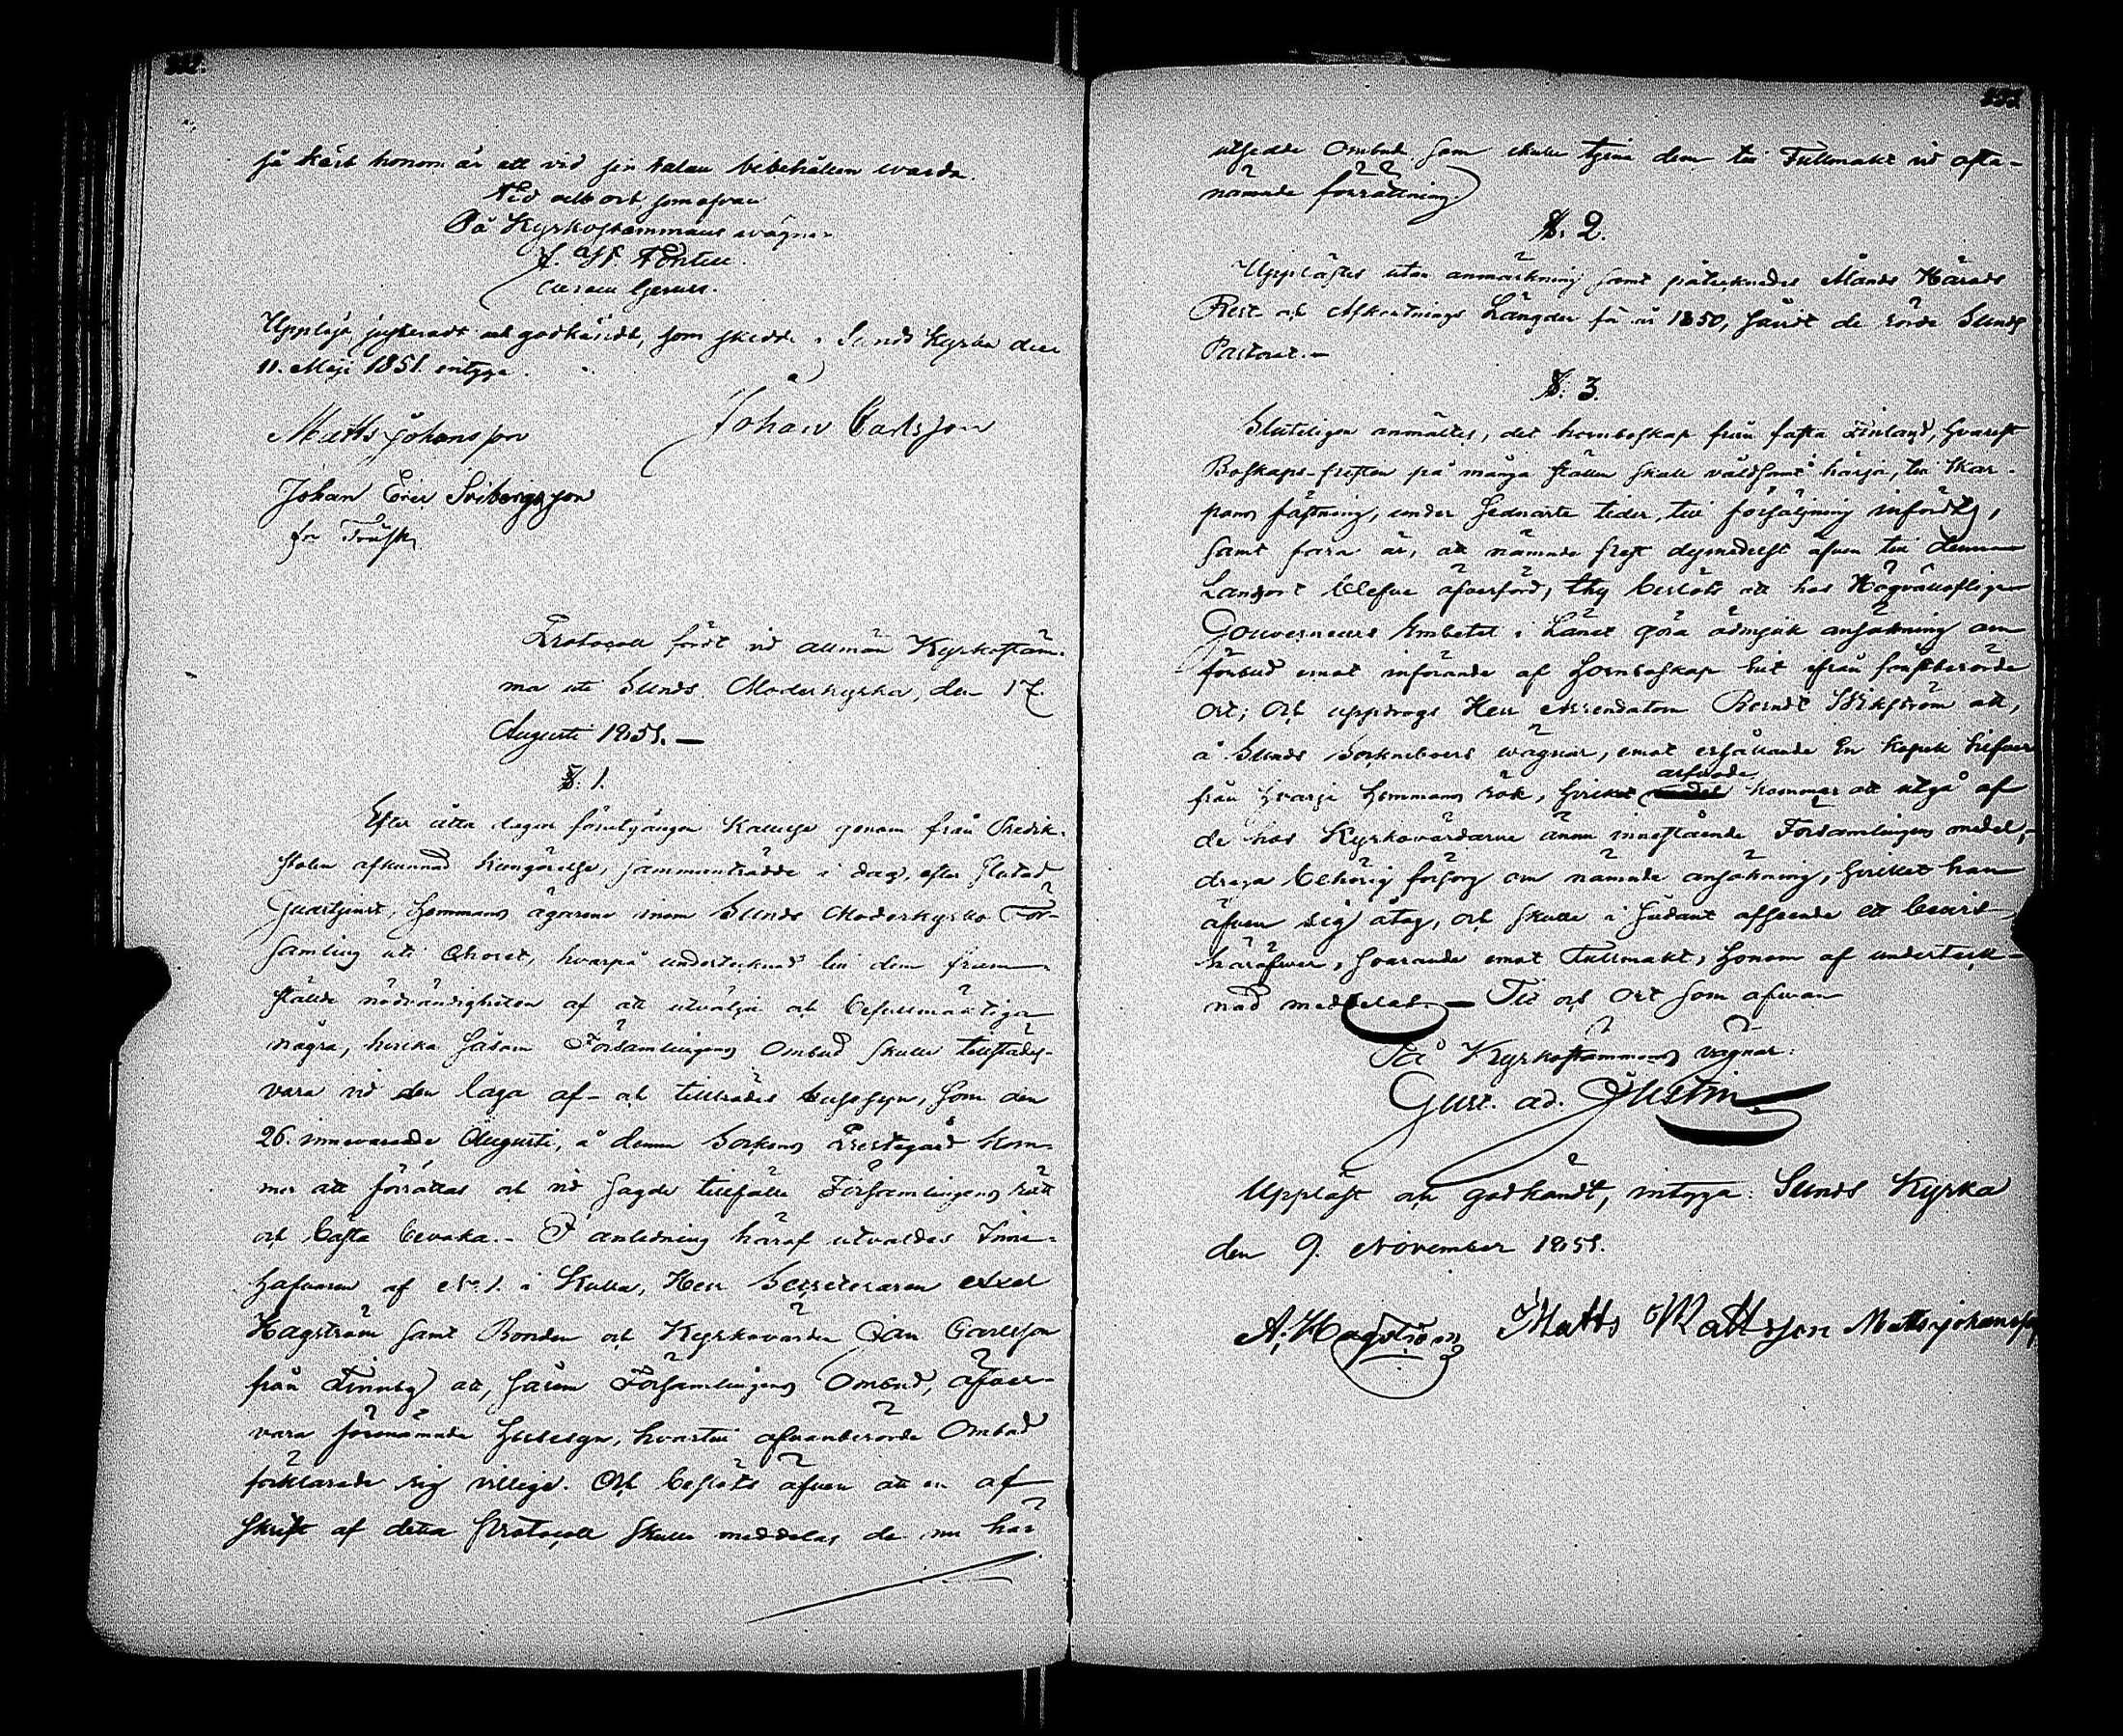 så kärt honom är att vid sin talan bibehållen warda.
Tid och ort som ofvan
På Kyrkostämmans wägnar
curam gerens.
Uppläst, justeradt och godkändt, som skedde i Sunds Kyrka den
11. Maji 1851. intyga.
Matts Johansson Johan Carlsson
Johan Eric
för Träsk
Protocoll fördt vid allmän Kyrkostäm-
ma uti Sunds Moderkyrka, den 17.
Augusti 1851. —
§. 1.
Efter åtta dagar förutgången kallelse genom från Predik-
stolen afkunnad kungörelse, sammanträdde i dag, efter slutad
Gudstjenst, Hemmans ägarene inom Sunds Moderkyrko För-
samling uti Choret, hvarpå undertecknad till dem fram-
stälde nödvändigheten af att utvälja och befullmäktiga
några, hvilka såsom Församlingens Ombud skulle tillstädes-
vara vid den laga af- och tillträdes husesyn, som den
26. innevarande Augusti, å denna Sockens Prestegård kom-
mer att förrättas och vid sagde tillfälle Församlingens rätt
och bästa bevaka. - I anledning häraf utvaldes Inne-
hafvaren af No. 1. i Kulla, Herr Secreteraren Axel
Hagström samt Bonden och Kyrkovärden Jan Carlsson
från Finnby att, såsom Församlingens Ombud, öfver-
vara förenämnde Husesyn, hvartill ofvanberörde Ombud
förklarade sig villige. Och beslöts äfven att en af-
skrift af detta Protocoll skulle meddelas de nu här
utsedde Ombud, som skulle tjena dem till Fullmakt vid ofta-
nämnde förrättning.
§. 2.
Upplästes utan anmärkning samt påtecknades Ålands Härads
Rest- och Afkortnings Längder för år 1850, såvidt de rörde Sunds
Pastorat. —
§. 3.
Slutligen anmältes, det hornboskap från fasta Finland, hvarest
Boskaps-presten på många ställen skall våldsamt härja, till Skar-
pans fästning, under sednaste tider, till försäljning införts,
samt förra är, att nämnde pest dymedelst äfven till denna
Landsort blefve öfverförd, thy beslöts att hos Högvällofliga
Gouverneurs Embetet i Länet göra ödmjuk ansökning om
förbud emot införande af Hornboskap hit ifrån sanstberörde
ort; och uppdrogs Herr Arrendatorn Berndt Wikström att,
å Sunds Sockneboers wägnar, emot erhållande En kopek Silfver
från hvarje Hemmans rök, hvilket arfvode kommer att utgå af
de hos Kyrkovärdarne ännu innestående Församlingens medel,
draga behörig försorg om nämnde ansökning, hvilket han
äfven sig åtog, och skulle i sådant afseende ett bevis
häröfver, svarande emot Fullmakt, honom af underteck-
nad meddelas. — Tid och Ort som ofvan
På Kyrkostämmans vägnar:
Gust. Ad.
Uppläst och godkändt, intyga: Sunds Kyrka
den 9. November 1851.
A. Hagström Matts Mattsson Matts Johansson